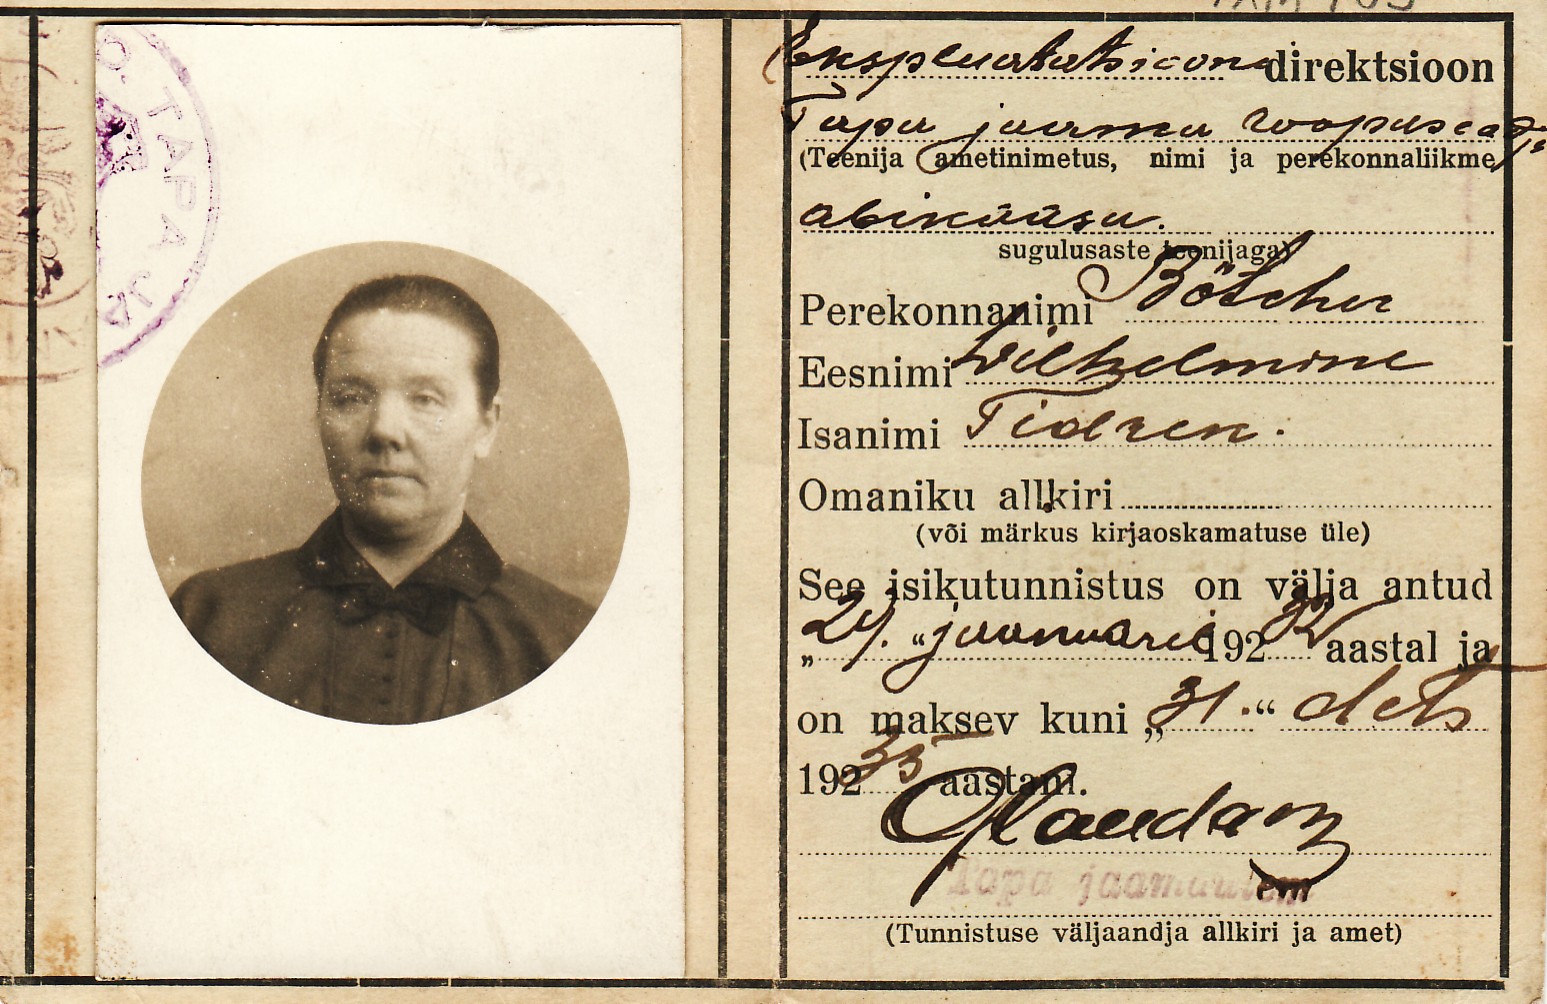 TAPA JA
Ekspluatatsiooni direktsioon
Tapa jaama
(Teenija ametinimetus, nimi ja perekonnaliikme
abikaasa.
sugulusaste teenijaga)
Perekonnanimi Bötcher
Eesnimi Wilhelmine
Isanimi
Omaniku allkiri
(või märkus kirjaoskamatuse üle)
See isikutunnistus on välja antud
„ “ jaanuaril 192 32 aastal ja
on maksev kuni „31.“ dets
192 35 aastani.
Tapa jaamaülem
(Tunnistuse väljaandja allkiri ja amet)